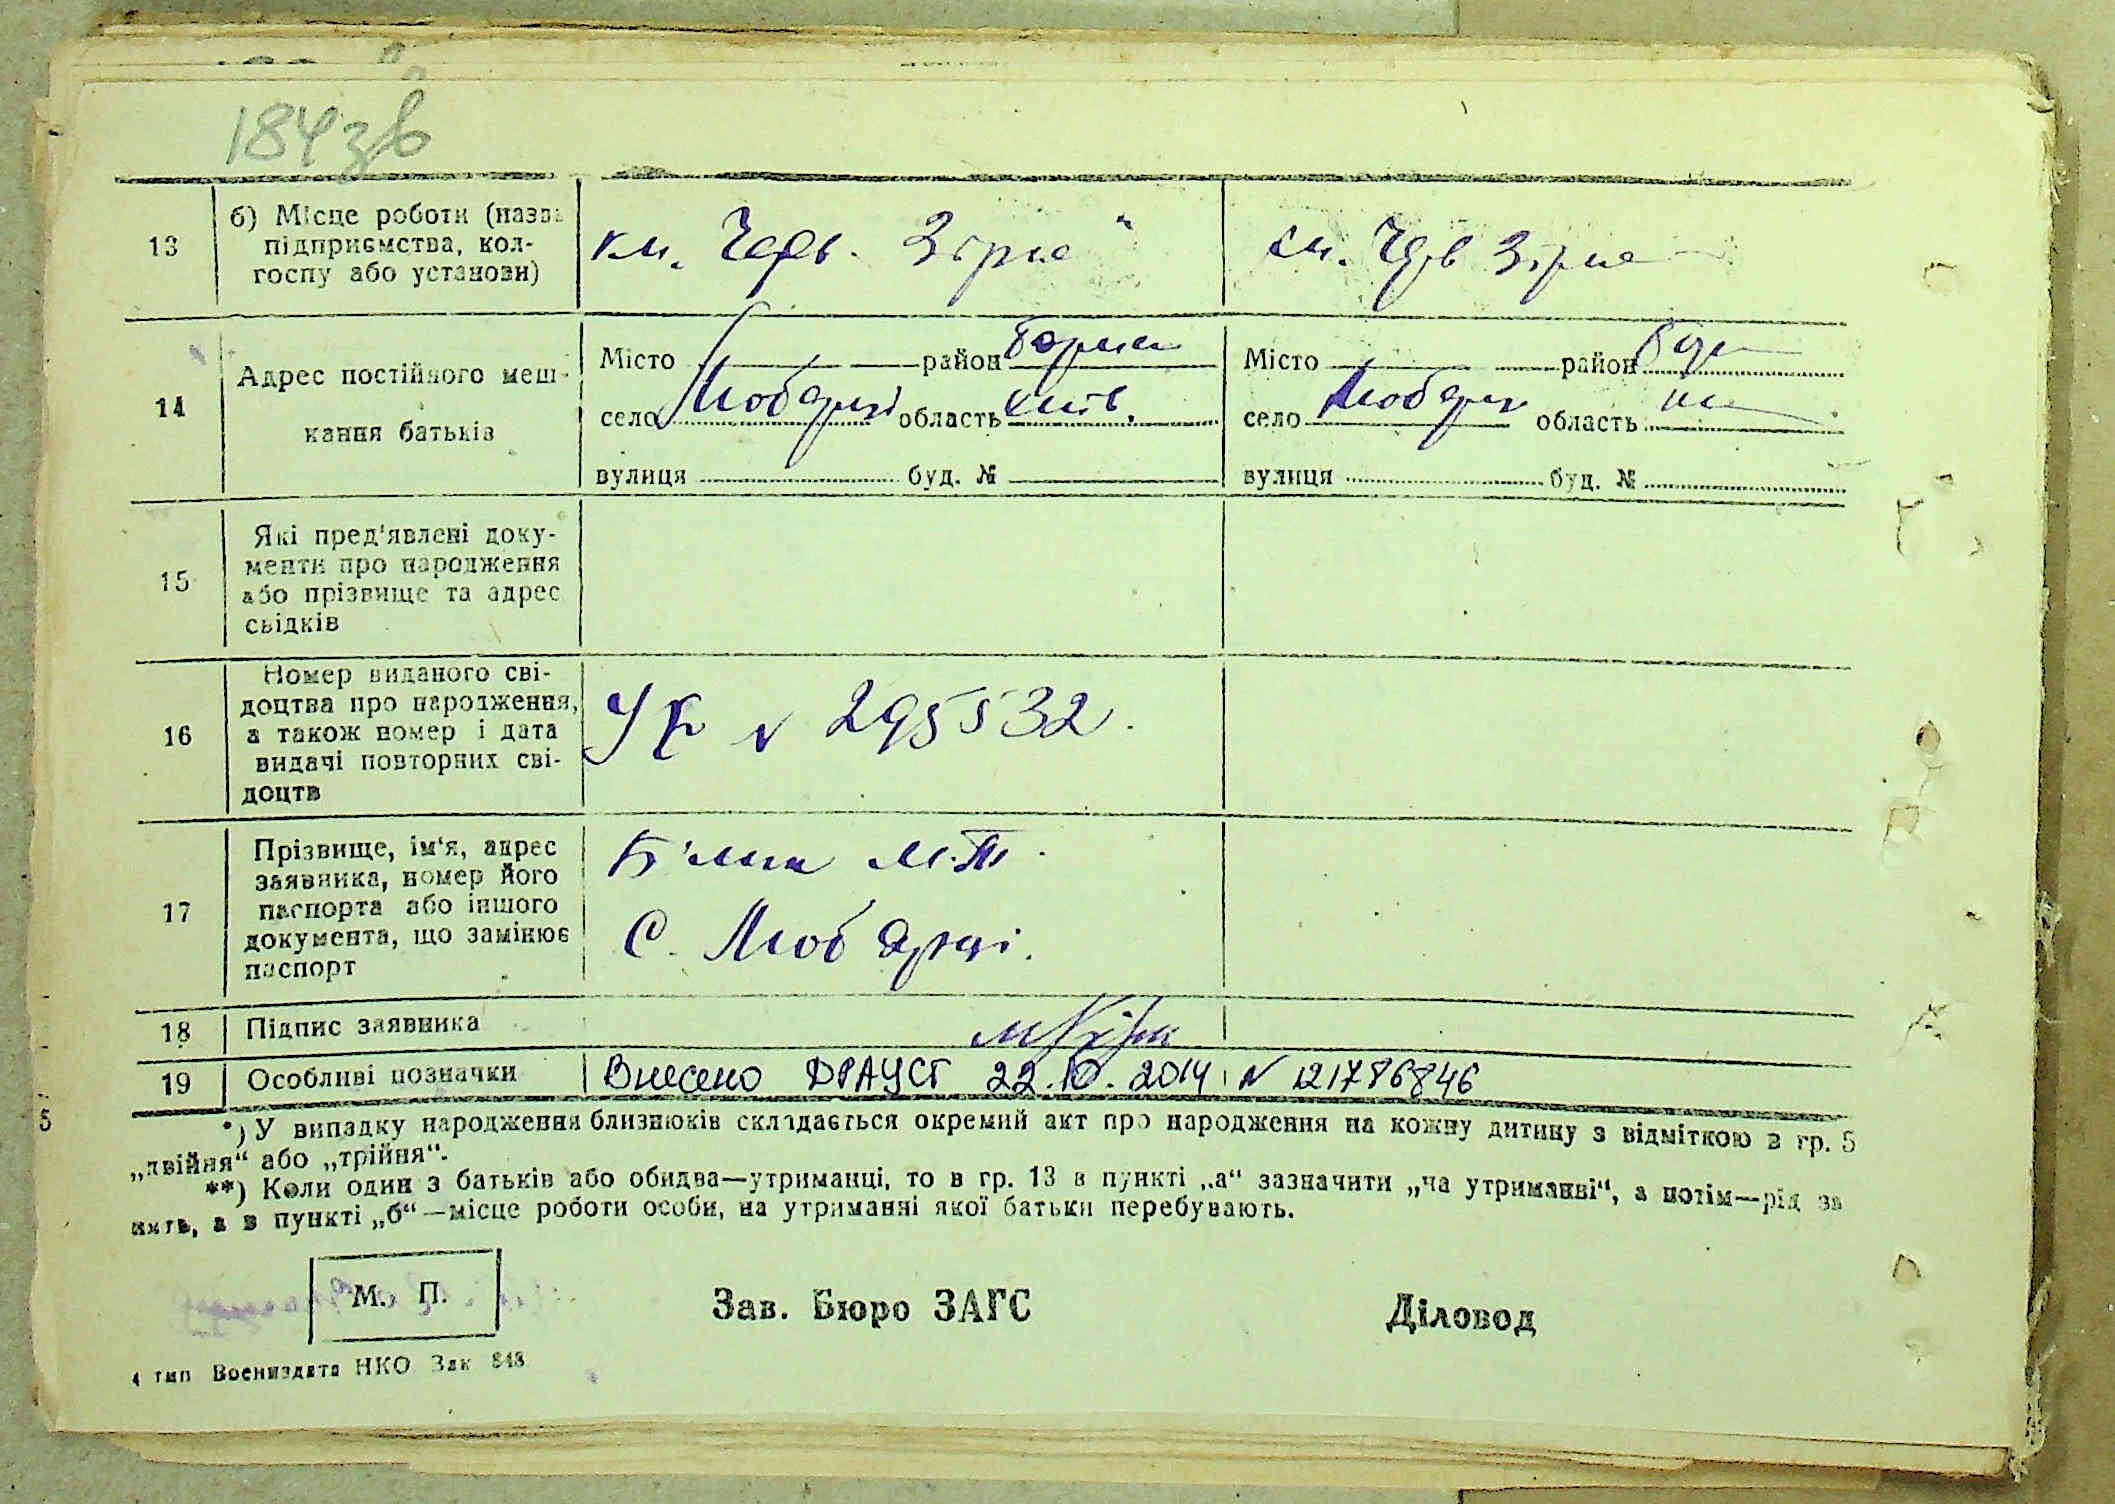 184зв
13
б) Місце роботи (назва
підприємства, кол-
госпу або установи)
кл. Черв. Зірка"
кл. Черв Зірка
14
Адрес постійного меш-
кання батьків
Місто район
село Любарці область Київ.
вулиця буд. №
Місто район
село Любарці область
вулиця буд. №
15
Які пред'явлені доку-
менти про народження
або прізвище та адрес
свідків
16
Номер виданого сві-
доцтва про народження,
а також номер і дата
видачі повторних сві-
доцтв
УК № 295532.
17
Прізвище, ім'я, адрес
заявника, номер його
паспорта або іншого
документа, що замінює
паспорт
М.
С. Любарці.
18
Підпис заявника
19
Особливі позначки
Внесено ДРАЦСГ 22.10.2014 № 121786846
*) У випадку народження близнюків складається окремий акт про народження на кожну дитину з відміткою в гр. 5
„двійня“ або „трійня“.
**) Коли один з батьків або обидва—утриманці, то в гр. 13 в пункті „а“ зазначити „на утриманві“, а потім—рід за
нять, а в пункті „б“—місце роботи особи, на утриманні якої батьки перебувають.
М. П.
Зав. Бюро ЗАГС
Діловод
4 тип Воениздата НКО Зак 848
5